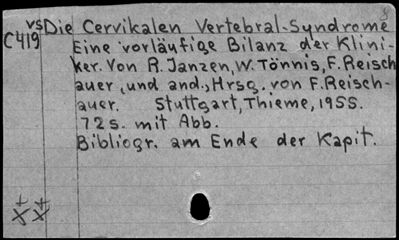 vs Die Cervikalen Vertebral-Syndrome
C419 Eine vorläufige Bilanz der Klini-
ker. Von R. Janzen, W. Tönnis, F. Reisch
auer, und and., Hrsg. von F. Reisch-
auer. Stuttgart, Thieme, 1955.
72 s. mit Abb.
Bibliogr. am Ende der Kapit.